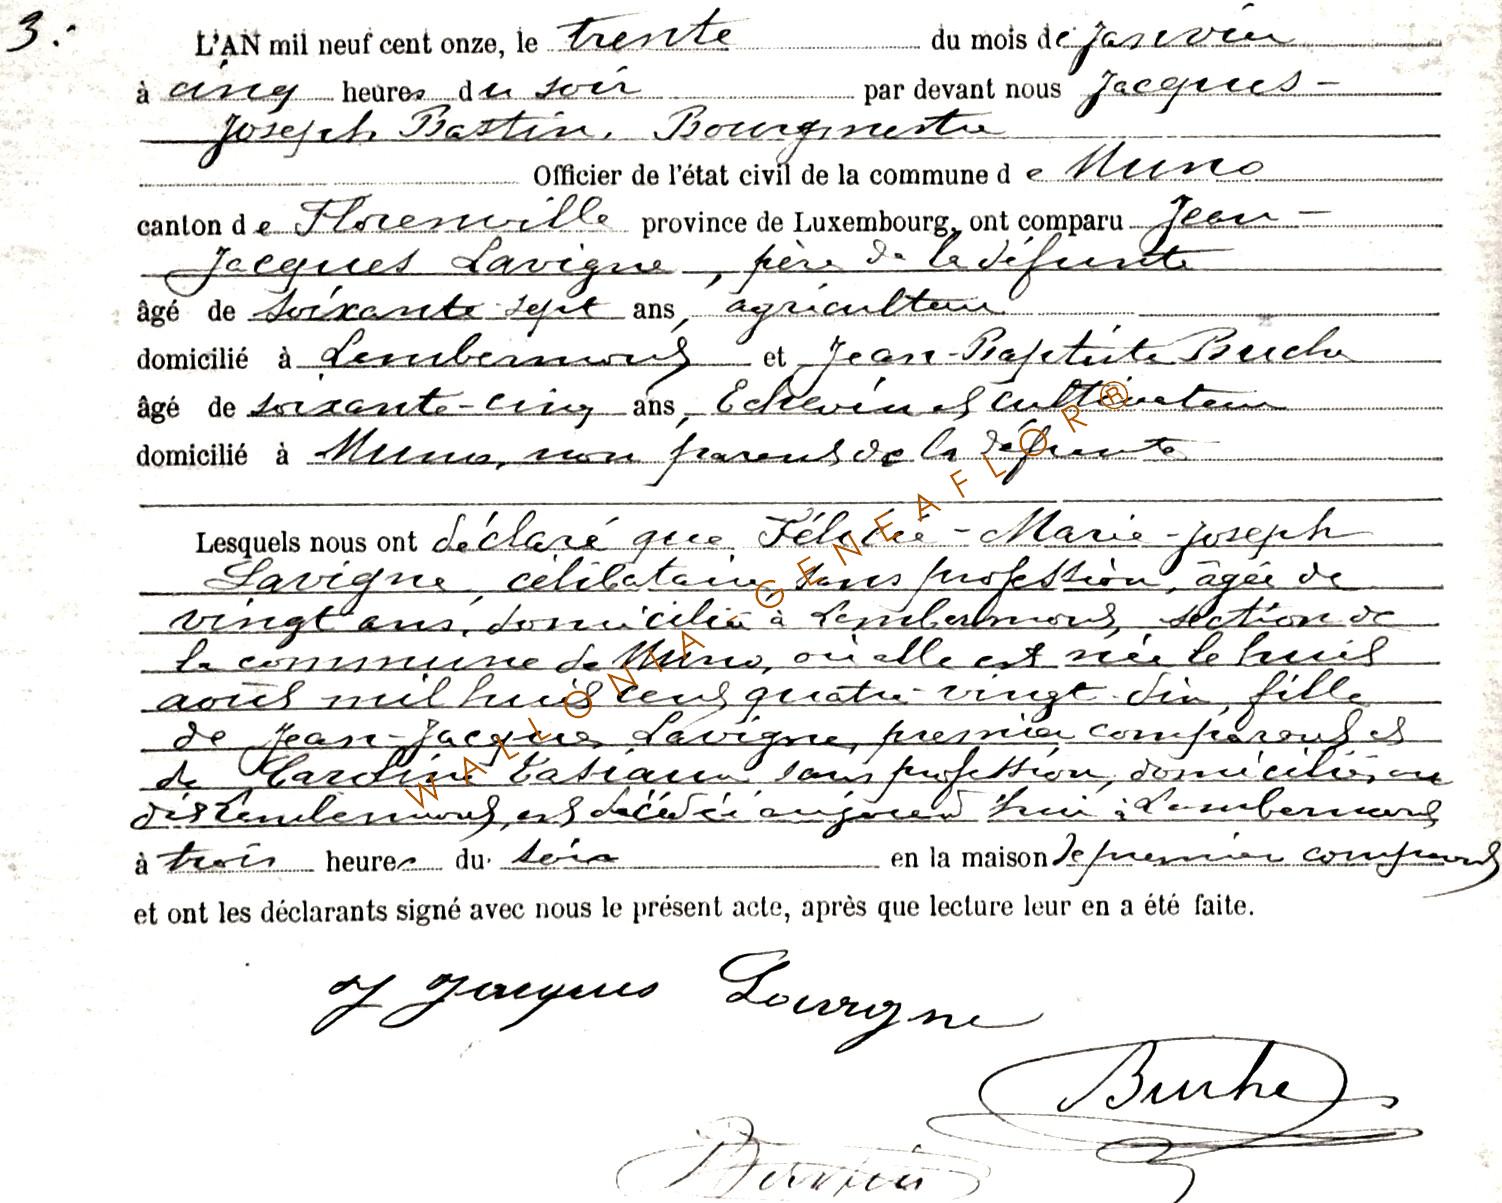 3.
L'AN mil neuf cent onze, le trente du mois de janvier
à cinq heures du soir par devant nous Jacques-
Joseph Bastin, Bourgmestre
Officier de l'état civil de la commune de Muno
canton de Florenville province de Luxembourg, ont comparu Jean-
Jacques Lavigne, père de la défunte
âgé de soixante-sept ans, agriculteur
domicilié à Lambermont et Jean-Baptiste Buche
âgé de soixante-cinq ans, Echevin et cultivateur
domicilié à Muno, non parent de la défunte
Lesquels nous ont déclaré que Félicie-Marie-Joseph
Lavigne, célibataire, sans profession, âgée de
vingt ans, domiciliée à Lambermont, section de
la commune de Muno, où elle est née le huit
août mil huit cent quatre-vingt-dix, fille
de Jean-Jacques Lavigne, premier comparant et
de Caroline sans profession, domiciliés au
dit Lambermont, est décédée aujourd'hui à Lambermont
à trois heures du soir en la maison de premier comparant
et ont les déclarants signé avec nous le présent acte, après que lecture leur en a été faite.
J Jacques Lavigne
Buche
Bastin
WALLONIA-GENEAFLOR®